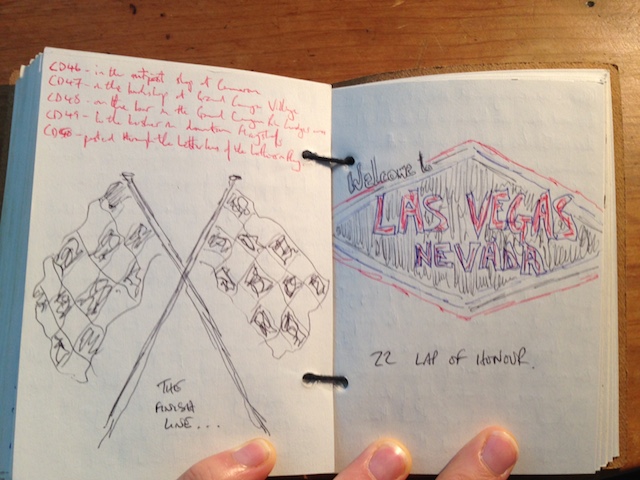 CD46 - in the outpost shop at Cameron
CD47 - in the bookshop at Grand Canyon Village
CD48 - on the bar in the Grand Canyon
CD49 - in the in downtown Flagstaff
CD50 - posted through the Letter box of the
THE
FINISH
LINE...
Welcome to
LAS VEGAS
NEVADA
22 LAP OF HONOUR.